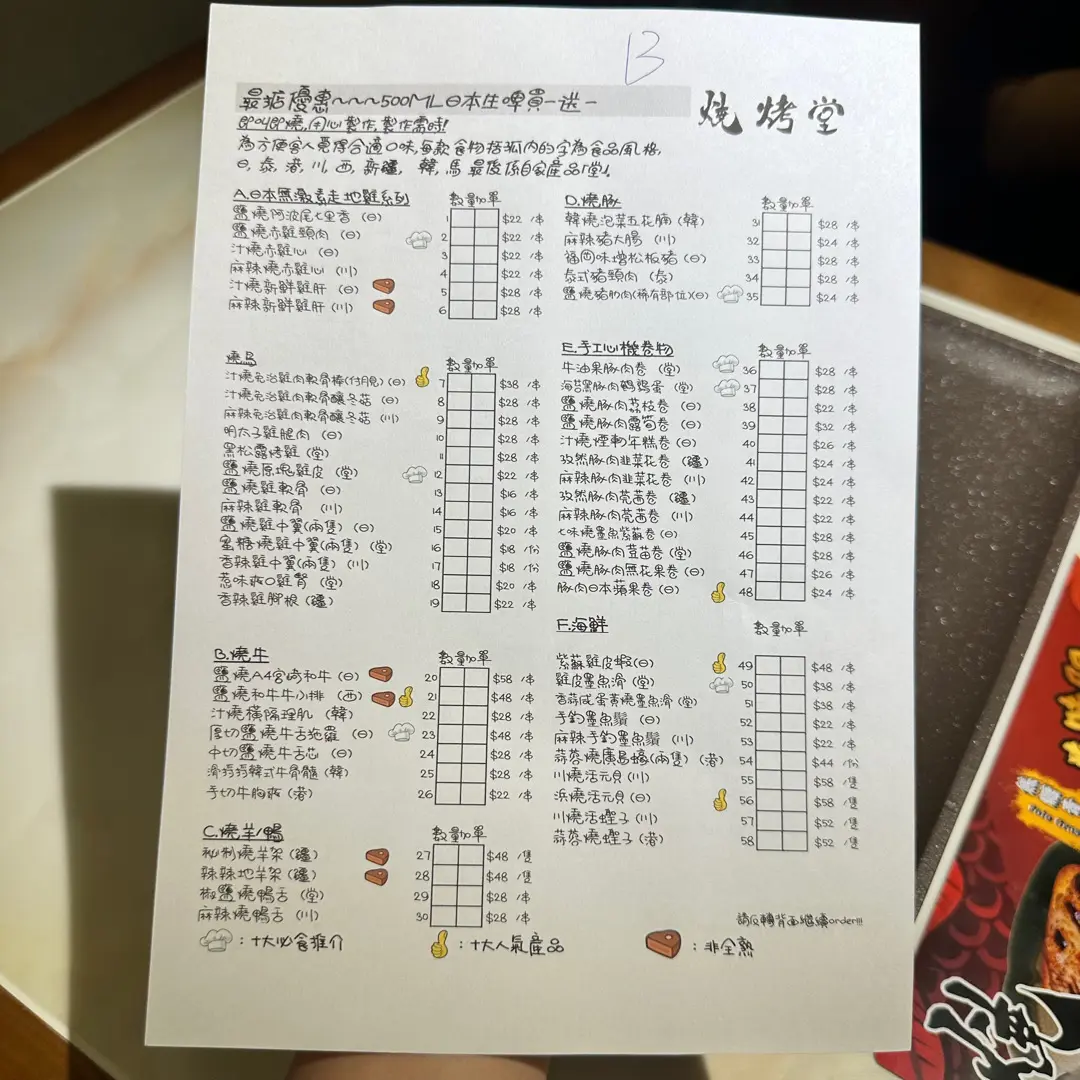 B
最掂優惠~~~500ML日本生啤買一送一
燒烤堂
即叫即燒,用心製作,製作需時!
為方便客人覓得合適口味,每款食物括弧內的字為食品風格,
日,泰,港,川,西,新疆,韓,馬最後係自家產品「堂」.
A.日本無激素走地雞系列 數量加單
鹽燒阿波尾七里香(日) 1 $22 /串
鹽燒赤雞頸肉(日) 2 $22 /串
汁燒赤雞心(日) 3 $22 /串
麻辣燒赤雞心(川) 4 $22 /串
汁燒新鮮雞肝(日) 5 $28 /串
麻辣新鮮雞肝(川) 6 $28 /串
燒鳥 數量加單
汁燒免治雞肉軟骨棒(付月見)(日) 7 $38 /串
汁燒免治雞肉軟骨釀冬菇(日) 8 $28 /串
麻辣免治雞肉軟骨釀冬菇(川) 9 $28 /串
明太子雞腿肉(日) 10 $28 /串
黑松露烤雞(堂) 11 $28 /串
鹽燒原塊雞皮(堂) 12 $22 /串
鹽燒雞軟骨(日) 13 $16 /串
麻辣雞軟骨(川) 14 $16 /串
鹽燒雞中翼(兩隻)(日) 15 $20 /串
蜜糖燒雞中翼(兩隻)(堂) 16 $18 /份
香辣雞中翼(兩隻)(川) 17 $18 /份
惹味爽口雞腎(堂) 18 $20 /串
香辣雞腳根(疆) 19 $22 /串
B.燒牛 數量加單
鹽燒A4宮崎和牛(日) 20 $58 /串
鹽燒和牛牛小排(西) 21 $48 /串
汁燒橫隔裡肌(韓) 22 $28 /串
厚切鹽燒牛舌拖羅(日) 23 $48 /串
中切鹽燒牛舌芯(日) 24 $28 /串
滑捋捋韓式牛骨髓(韓) 25 $28 /串
手切牛胸爽(港) 26 $22 /串
C.燒羊/鴨 數量加單
秘制燒羊架(疆) 27 $48 /隻
辣辣地羊架(疆) 28 $48 /隻
椒鹽燒鴨舌(堂) 29 $28 /串
麻辣燒鴨舌(川) 30 $28 /串
D.燒豚 數量加單
韓燒泡菜五花腩(韓) 31 $28 /串
麻辣豬大腸(川) 32 $24 /串
福岡味增松板豬(日) 33 $28 /串
泰式豬頸肉(泰) 34 $28 /串
鹽燒豬肋肉(稀有部位)(日) 35 $24 /串
E.手工心機卷物 數量加單
牛油果豚肉卷(堂) 36 $28 /串
海苔黑豚肉鵪鶉蛋(堂) 37 $28 /串
鹽燒豚肉荔枝卷(日) 38 $22 /串
鹽燒豚肉露筍卷(日) 39 $32 /串
汁燒煙鴨年糕卷(日) 40 $26 /串
孜然豚肉韭菜花卷(疆) 41 $24 /串
麻辣豚肉韭菜花卷(川) 42 $24 /串
孜然豚肉芫茜卷(疆) 43 $22 /串
麻辣豚肉芫茜卷(川) 44 $22 /串
七味燒墨魚紫蘇卷(日) 45 $28 /串
鹽燒豚肉荳苗卷(堂) 46 $28 /串
鹽燒豚肉無花果卷(日) 47 $26 /串
豚肉日本蘋果卷(日) 48 $24 /串
F.海鮮 數量加單
紫蘇雞皮蝦(日) 49 $48 /串
雞皮墨魚滑(堂) 50 $38 /串
香蒜咸蛋黃燒墨魚滑(堂) 51 $38 /串
手釣墨魚鬚(日) 52 $22 /串
麻辣手釣墨魚鬚(川) 53 $22 /串
蒜蓉燒廣島蠔(兩隻)(港) 54 $44 /份
川燒活元貝(川) 55 $58 /隻
浜燒活元貝(日) 56 $58 /隻
川燒活蟶子(川) 57 $52 /隻
蒜蓉燒蟶子(港) 58 $52 /隻
請反轉背面繼續order!!!
:十大必食推介 :十大人氣產品 :非全熟